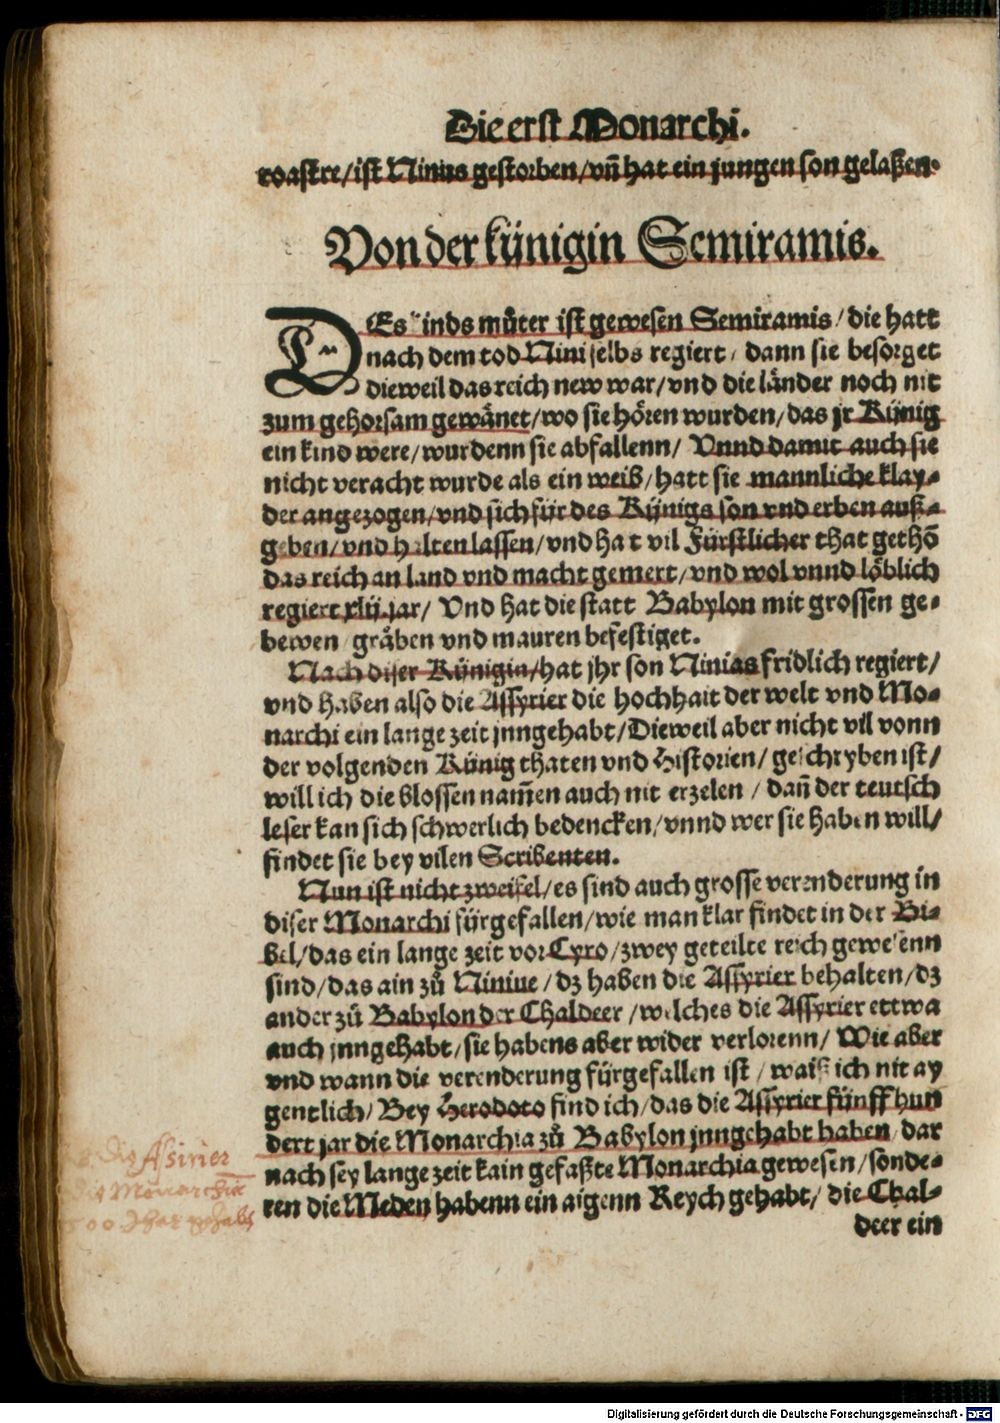 Die erst Monarchi.
roastre/ist Ninus gestorben/vñ hat ein jungen son gelaßen.
Von der künigin Semiramis.
DEs kinds můter ist gewesen Semiramis/die hatt
nach dem tod Nini selbs regiert/ dann sie besorget
dieweil das reich new war/vnd die länder noch nit
zum gehorsam gewänet/wo sie hören wurden/das jr Künig
ein kind were/wurdenn sie abfallenn/ Vnnd damit auch sie
nicht veracht wurde als ein weib/hatt sie mannliche klay-
der angezogen/vnd sich für des Künigs son vnd erben auß-
geben/vnd halten lassen/vnd hat vil Fürstlicher that gethõ
das reich an land vnd macht gemert/vnd wol vnnd löblich
regiert xlij.jar/ Vnd hat die statt Babylon mit grossen ge-
bewen gräben vnd mauren befestiget.
Nach diser Künigin/hat jhr son Ninias fridlich regiert/
vnd haben also die Assyrier die hochhait der welt vnd Mo-
narchi ein lange zeit jnngehabt/Dieweil aber nicht vil vonn
der volgenden Künig thaten vnd Historien/geschryben ist/
will ich die blossen nam̃en auch nit erzelen/dañ der teutsch
leser kan sich schwerlich bedencken/vnnd wer sie haben will/
findet sie bey vilen Scribenten.
Nun ist nicht zweifel/es sind auch grosse verenderung in
diser Monarchi fürgefallen/wie man klar findet in der Bi-
bel/das ein lange zeit vor Cyro/zwey geteilte reich gewesenn
sind/das ain zů Niniue/dz haben die Assyrier behalten/dz
ander zů Babylon der Chaldeer/welches die Assyrier ettwa
auch jnngehabt/sie habens aber wider verlorenn/ Wie aber
vnd wann die verenderung fürgefallen ist/waiß ich nit ay
gentlich/Bey Herodoto find ich/das die Assyrier fünff hun
dert jar die Monarchia zů Babylon jnngehabt haben/dar
nach sey lange zeit kain gefaßte Monarchia gewesen/sonde-
ren die Meden habenn ein aigenn Reych gehabt/ die Chal-
deer ein
die Assirier
die Monarchia
500 Jhar gehabt
Digitalisierung gefördert durch die Deutsche Forschungsgemeinschaft - DFG